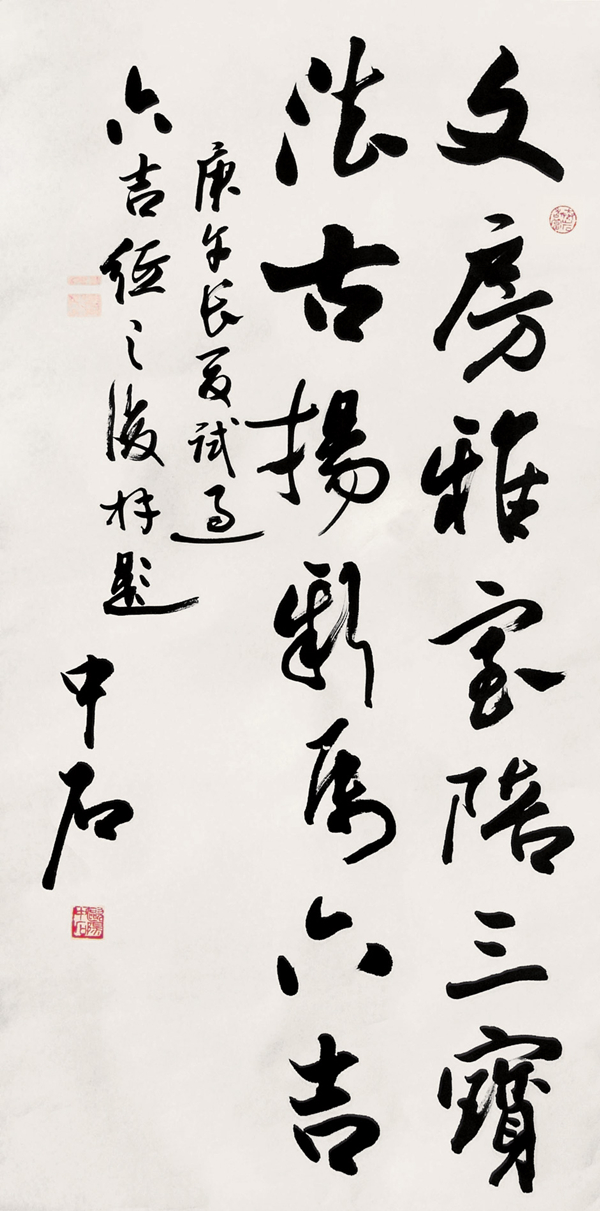 文房雅室陪三寶
法古揚新属六吉
庚午長夏試過
六吉紙之後題
中石